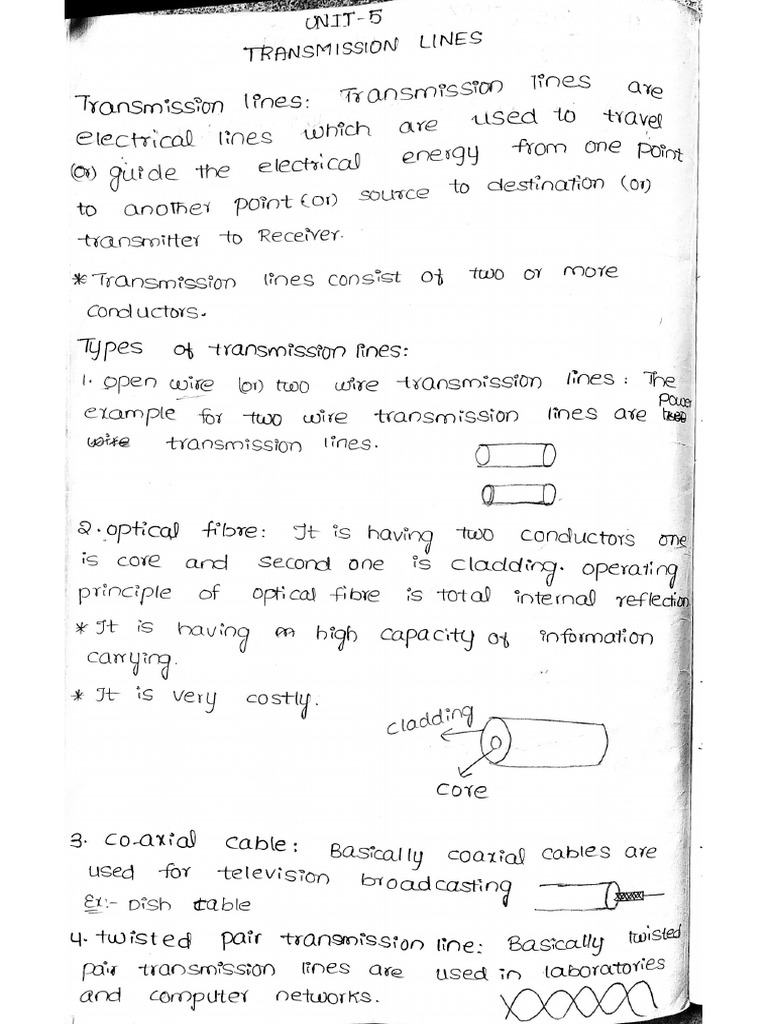 UNIT-5
TRANSMISSION LINES
Transmission lines: Transmission lines are
electrical lines which are used to travel
(or) guide the electrical energy from one point
to another point (or) source to destination (or)
transmitter to Receiver.
* Transmission lines consist of two or more
conductors.
Types of transmission lines:
1. open wire (or) two wire transmission lines : The
example for two wire transmission lines are power
wire transmission lines.
2. optical fibre: It is having two conductors one
is core and second one is cladding. operating
principle of optical fibre is total internal reflection
* It is having high capacity of information
carrying.
* It is very costly.
cladding
core
3. co-axial cable: Basically coaxial cables are
used for television broadcasting
Ex:- Dish cable
4. twisted pair transmission line: Basically twisted
pair transmission lines are used in laboratories
and computer networks.